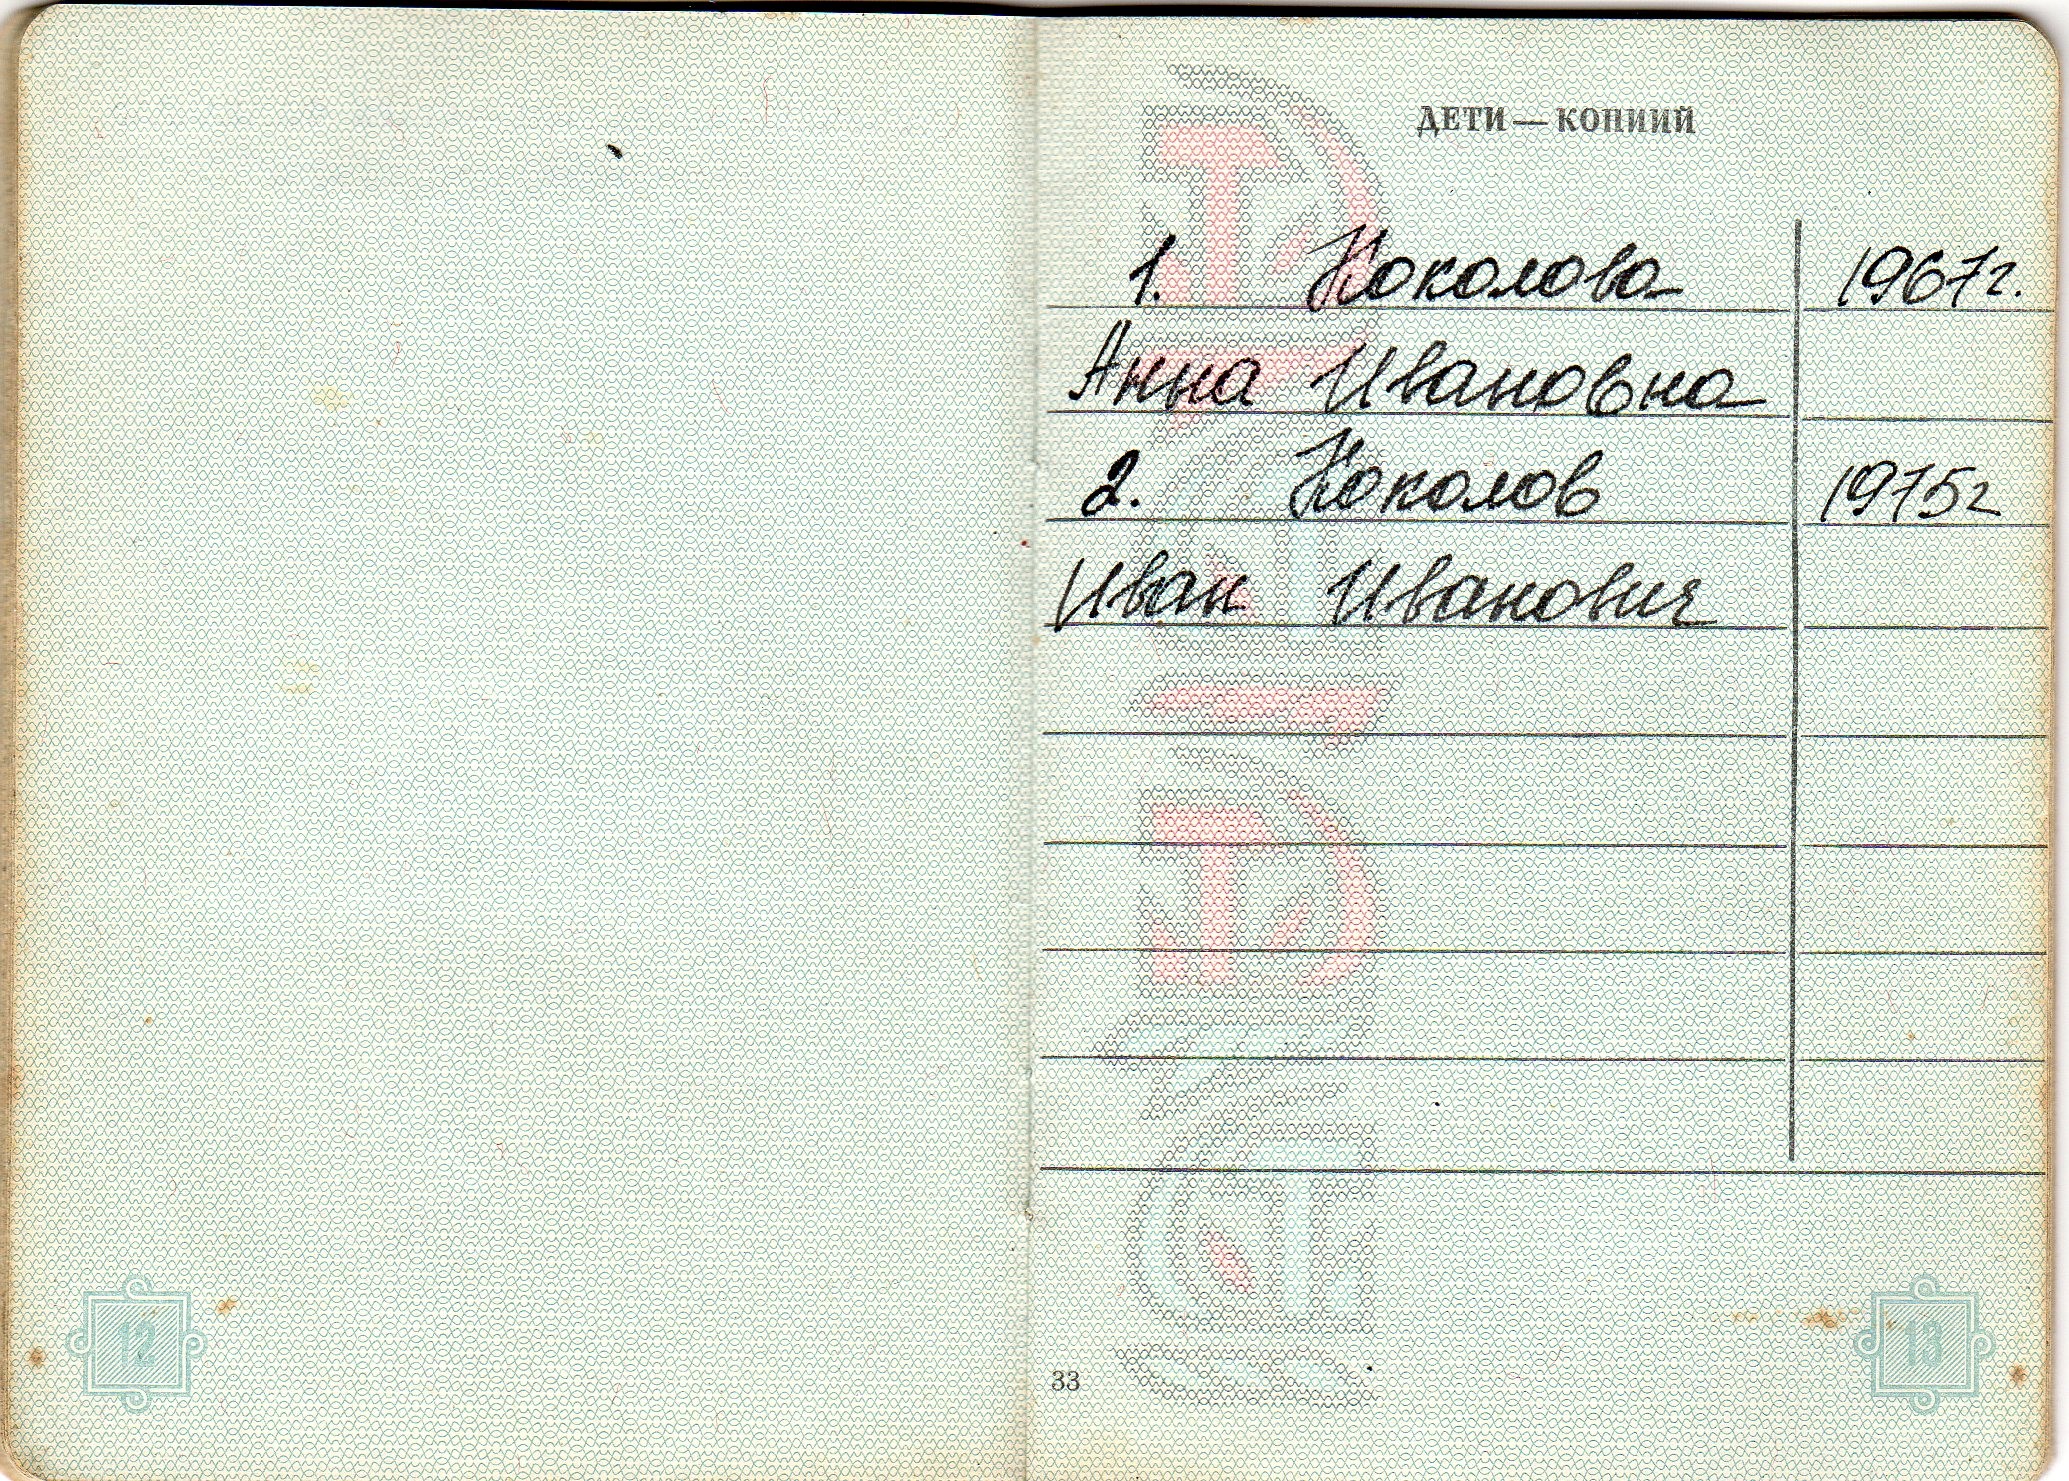 ДЕТИ — КОПИИЙ
1. Ноколова 1967г.
Анна Ивановна
2. Ноколов 1975г
Иван Иванович
12
33
13